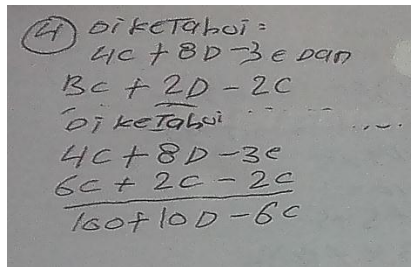 ④ DikeTahui =
4C + 8D - 3e Dan
BC + 2D - 2C
DikeTahui ....
4C + 8D - 3e
6C + 2C - 2C
10 + 10D - 6C